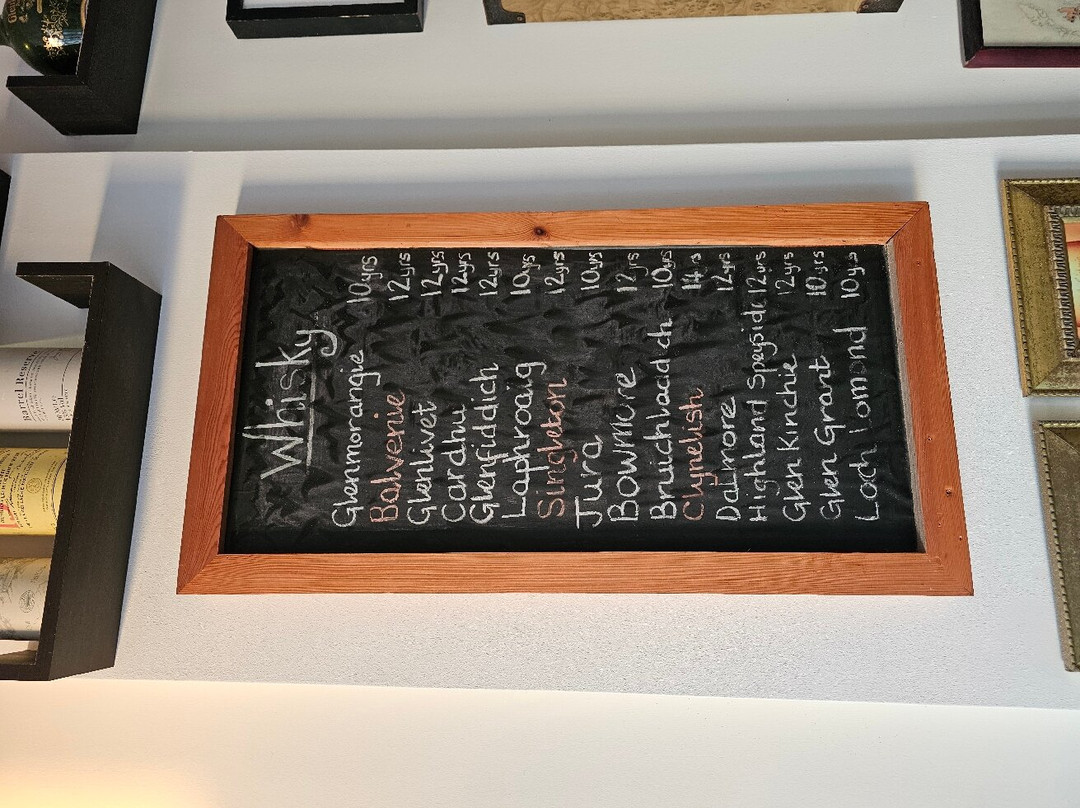 Whisky
Glenmorangie 10yrs
Balvenie 12yrs
Glenlivet 12yrs
Cardhu 12yrs
Glenfiddich 12yrs
Laphroaig 10yrs
Singleton 12yrs
Jura 10yrs
Bowmore 12yrs
Bruichladdich 10yrs
Clynelish 14yrs
Dalmore 12yrs
Highland Speyside 12yrs
Glen Kinchie 12yrs
Glen Grant 10yrs
Loch Lomond 10yrs
Barrel Reserve